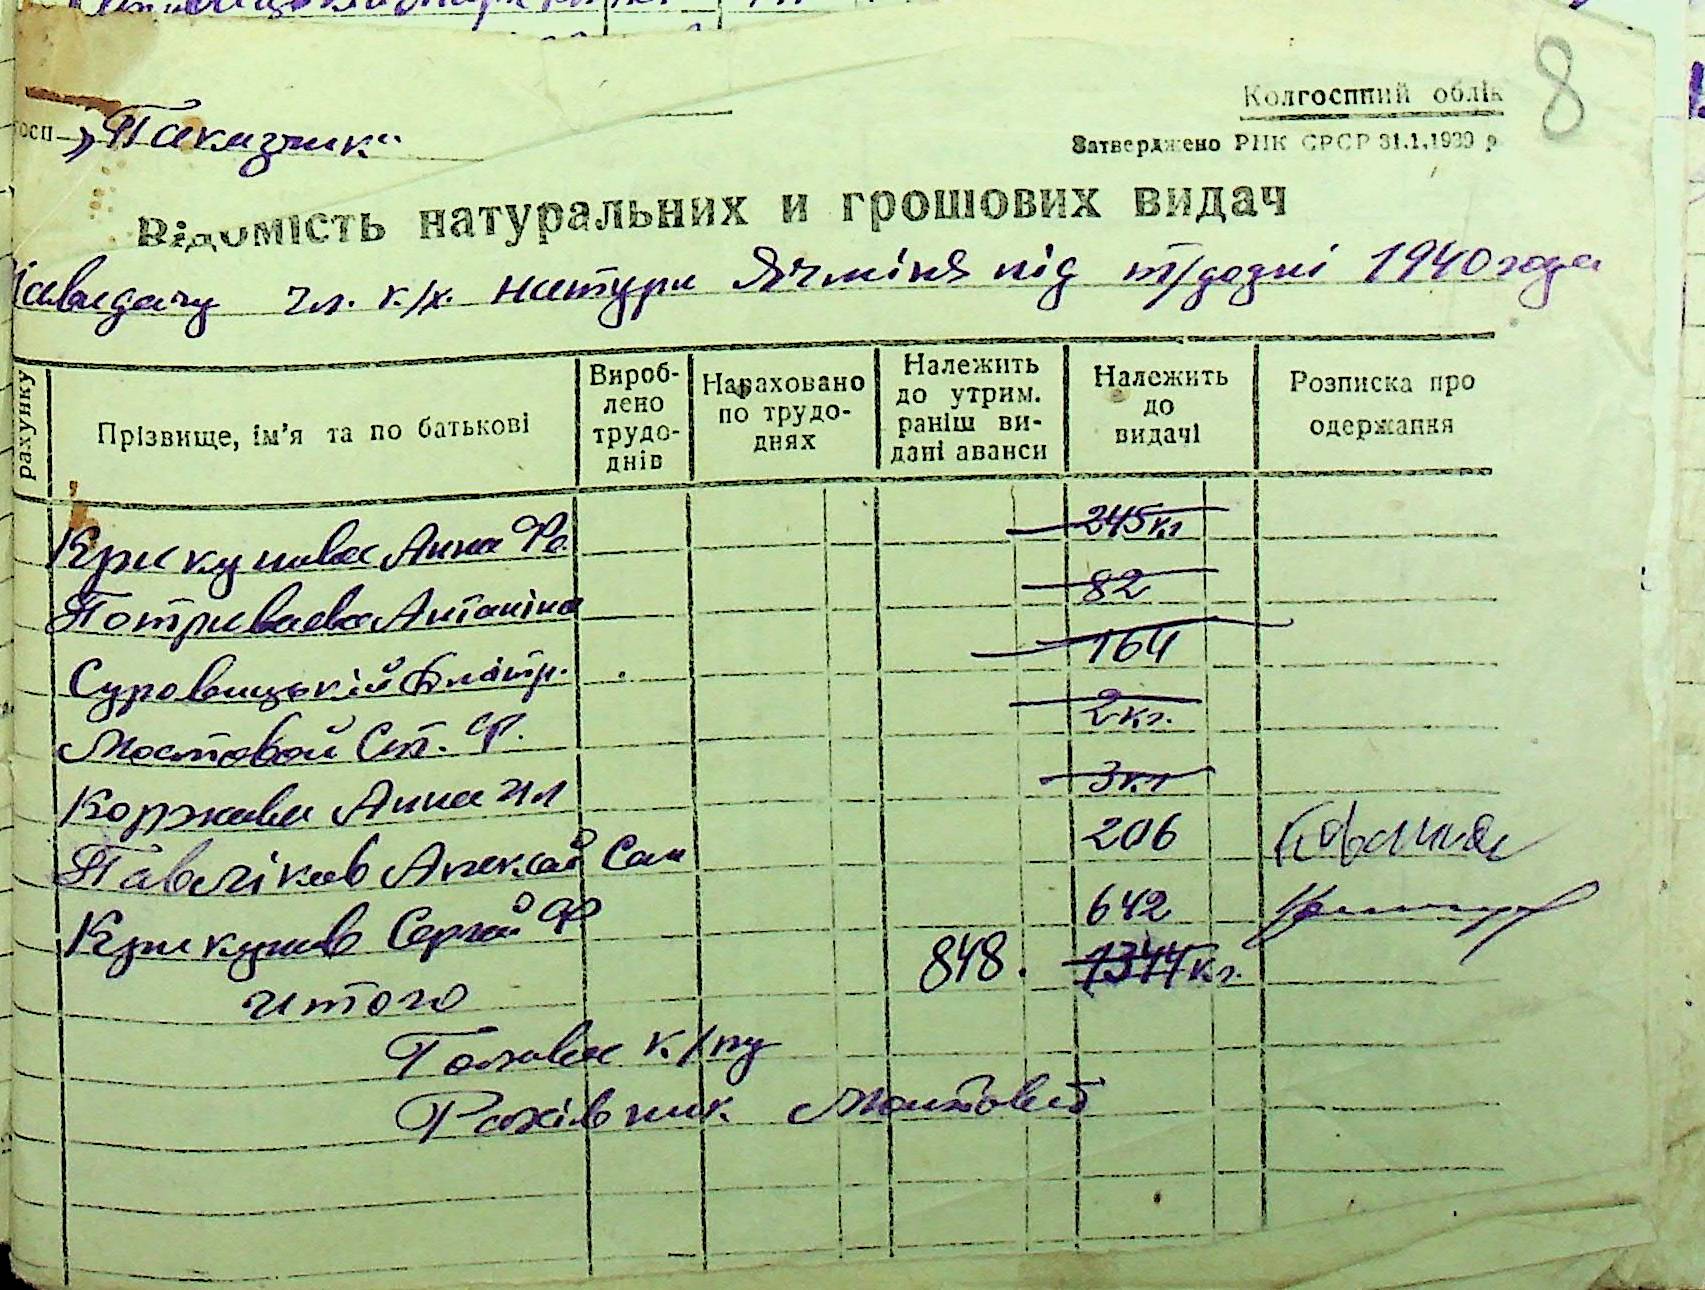 8
Колгоспний облік
Затверджено РНК СРСР 31.1.1939 р.
осп „Показник“
Відомість натуральних и грошових видач
На видачу чл. к/х. натури Ячміня під т/додні 1940 года
рахунку
Прізвище, ім'я та по батькові
Вироб-
лено
трудо-
днів
Нараховано
по трудо-
днях
Належить
до утрим.
раніш ви-
дані аванси
Належить
до
видачі
Розписка про
одержання
Крикунова Анна Фе. 245 кг
Потриваева Антаніна 82
Суровицькій Дмітр. 164
Мостовой Сте. Ф. 2 кг.
Коржова Анна Ил 3 кг
Павліков Алексей Сам 206
Крикунов Сергей Ф 642
Итого 848. 1344 кг.
Голова к/пу
Рахівник Мостовой